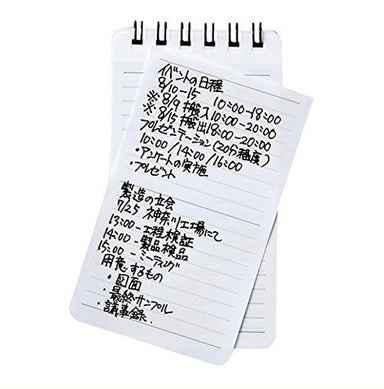 イベントの日程
8/10-15 10:00-18:00
※8/9 搬入10:00-20:00
※8/15 搬出18:00-20:00
プレゼンテーション(20分程度)
10:00/14:00/16:00
・アンケートの実施
・プレゼント
製造の立会
7/25 神奈川工場にて
13:00-工程検証
14:00-製品検品
15:00-ミーティング
用意するもの
・図面
・最終サンプル
・議事録.